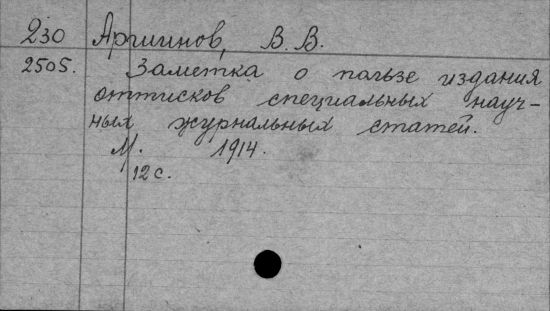 230 Аршинов, В. В.
2505. Заметка о пользе издания
оттисков специальных науч-
ных журнальных статей.
М. 1914.
12 с.